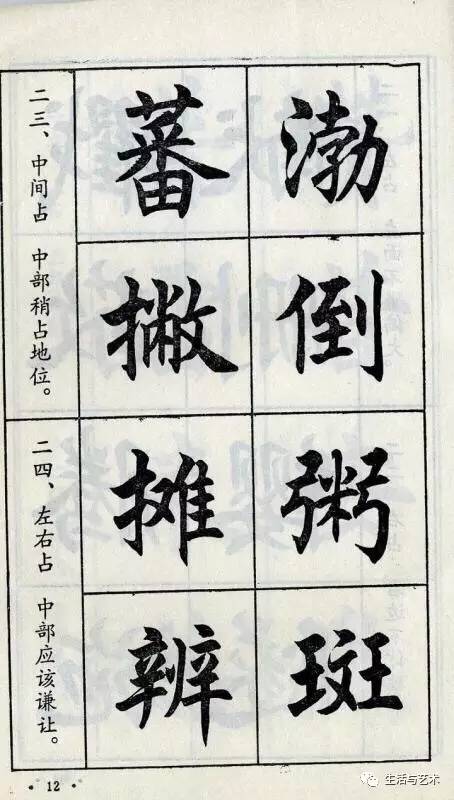 二三、中间占 中部稍占地位。
蕃 渤
撇 倒
二四、左右占 中部应该谦让。
摊 粥
辨 斑
· 12 ·
生活与艺术